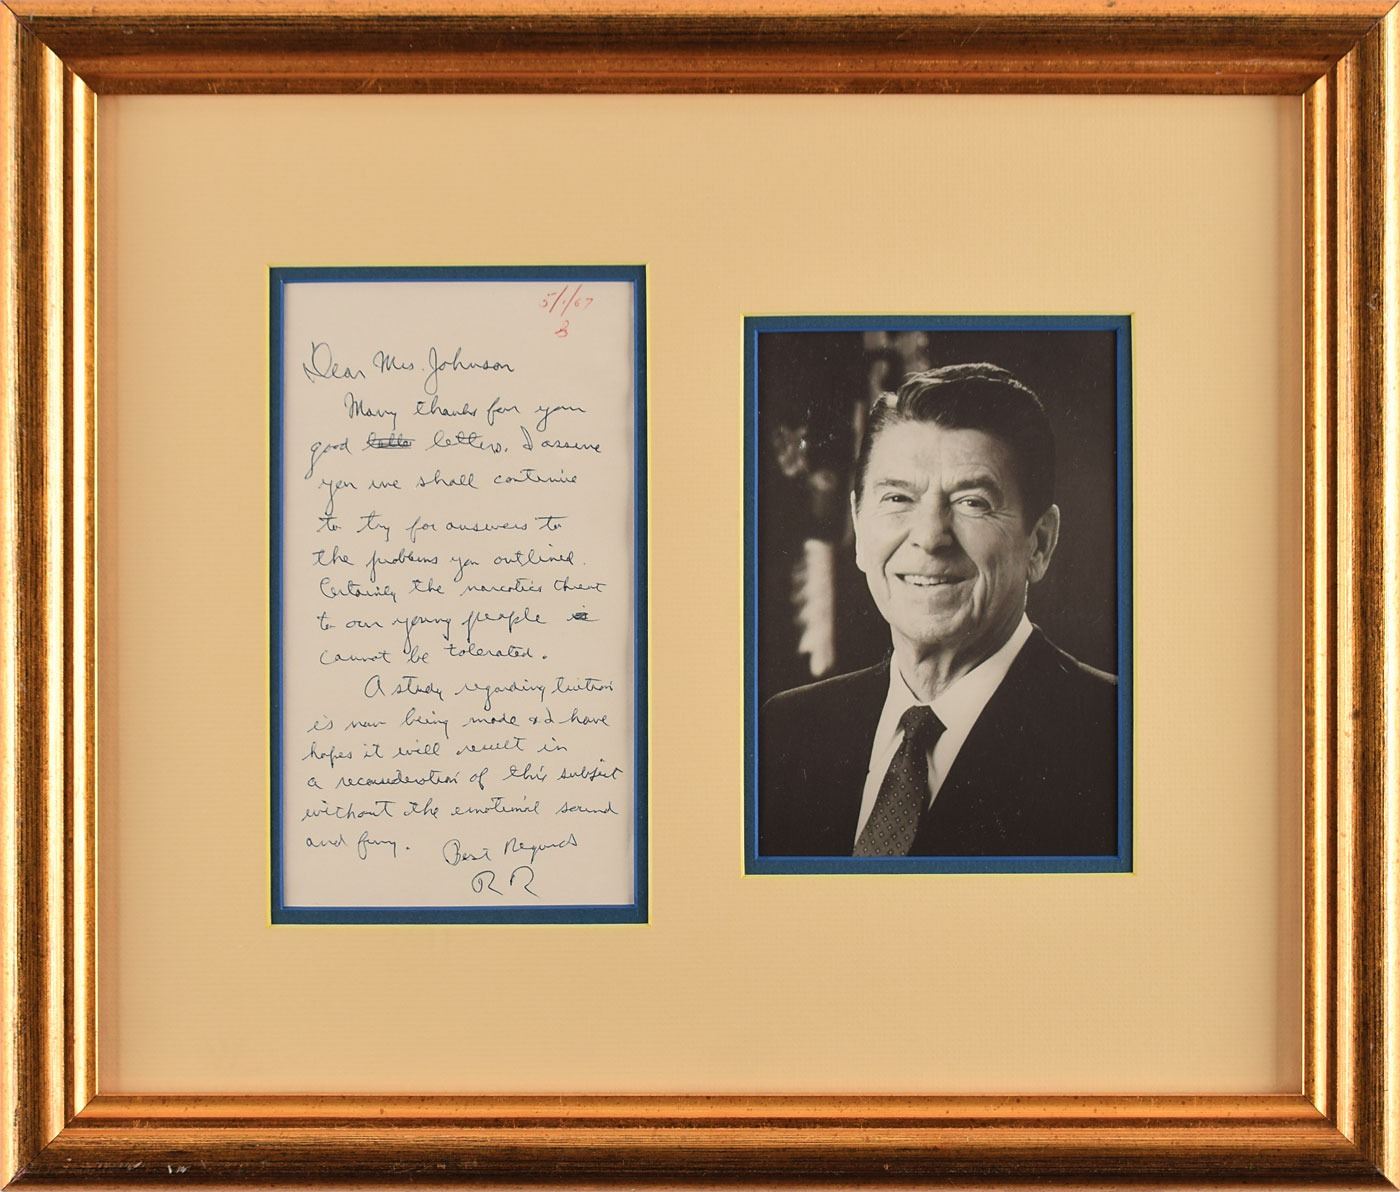 5/1/67
Dear Mrs. Johnson
Many thanks for your
good letters. I assure
you we shall continue
to try for answers to
the problems you outlined.
Certainly the narcotics threat
to our young people is
cannot be tolerated.
A study regarding tuition
is now being made & I have
hopes it will result in
a reconsideration of this subject
without the emotional sound
and fury. Best Regards
RR